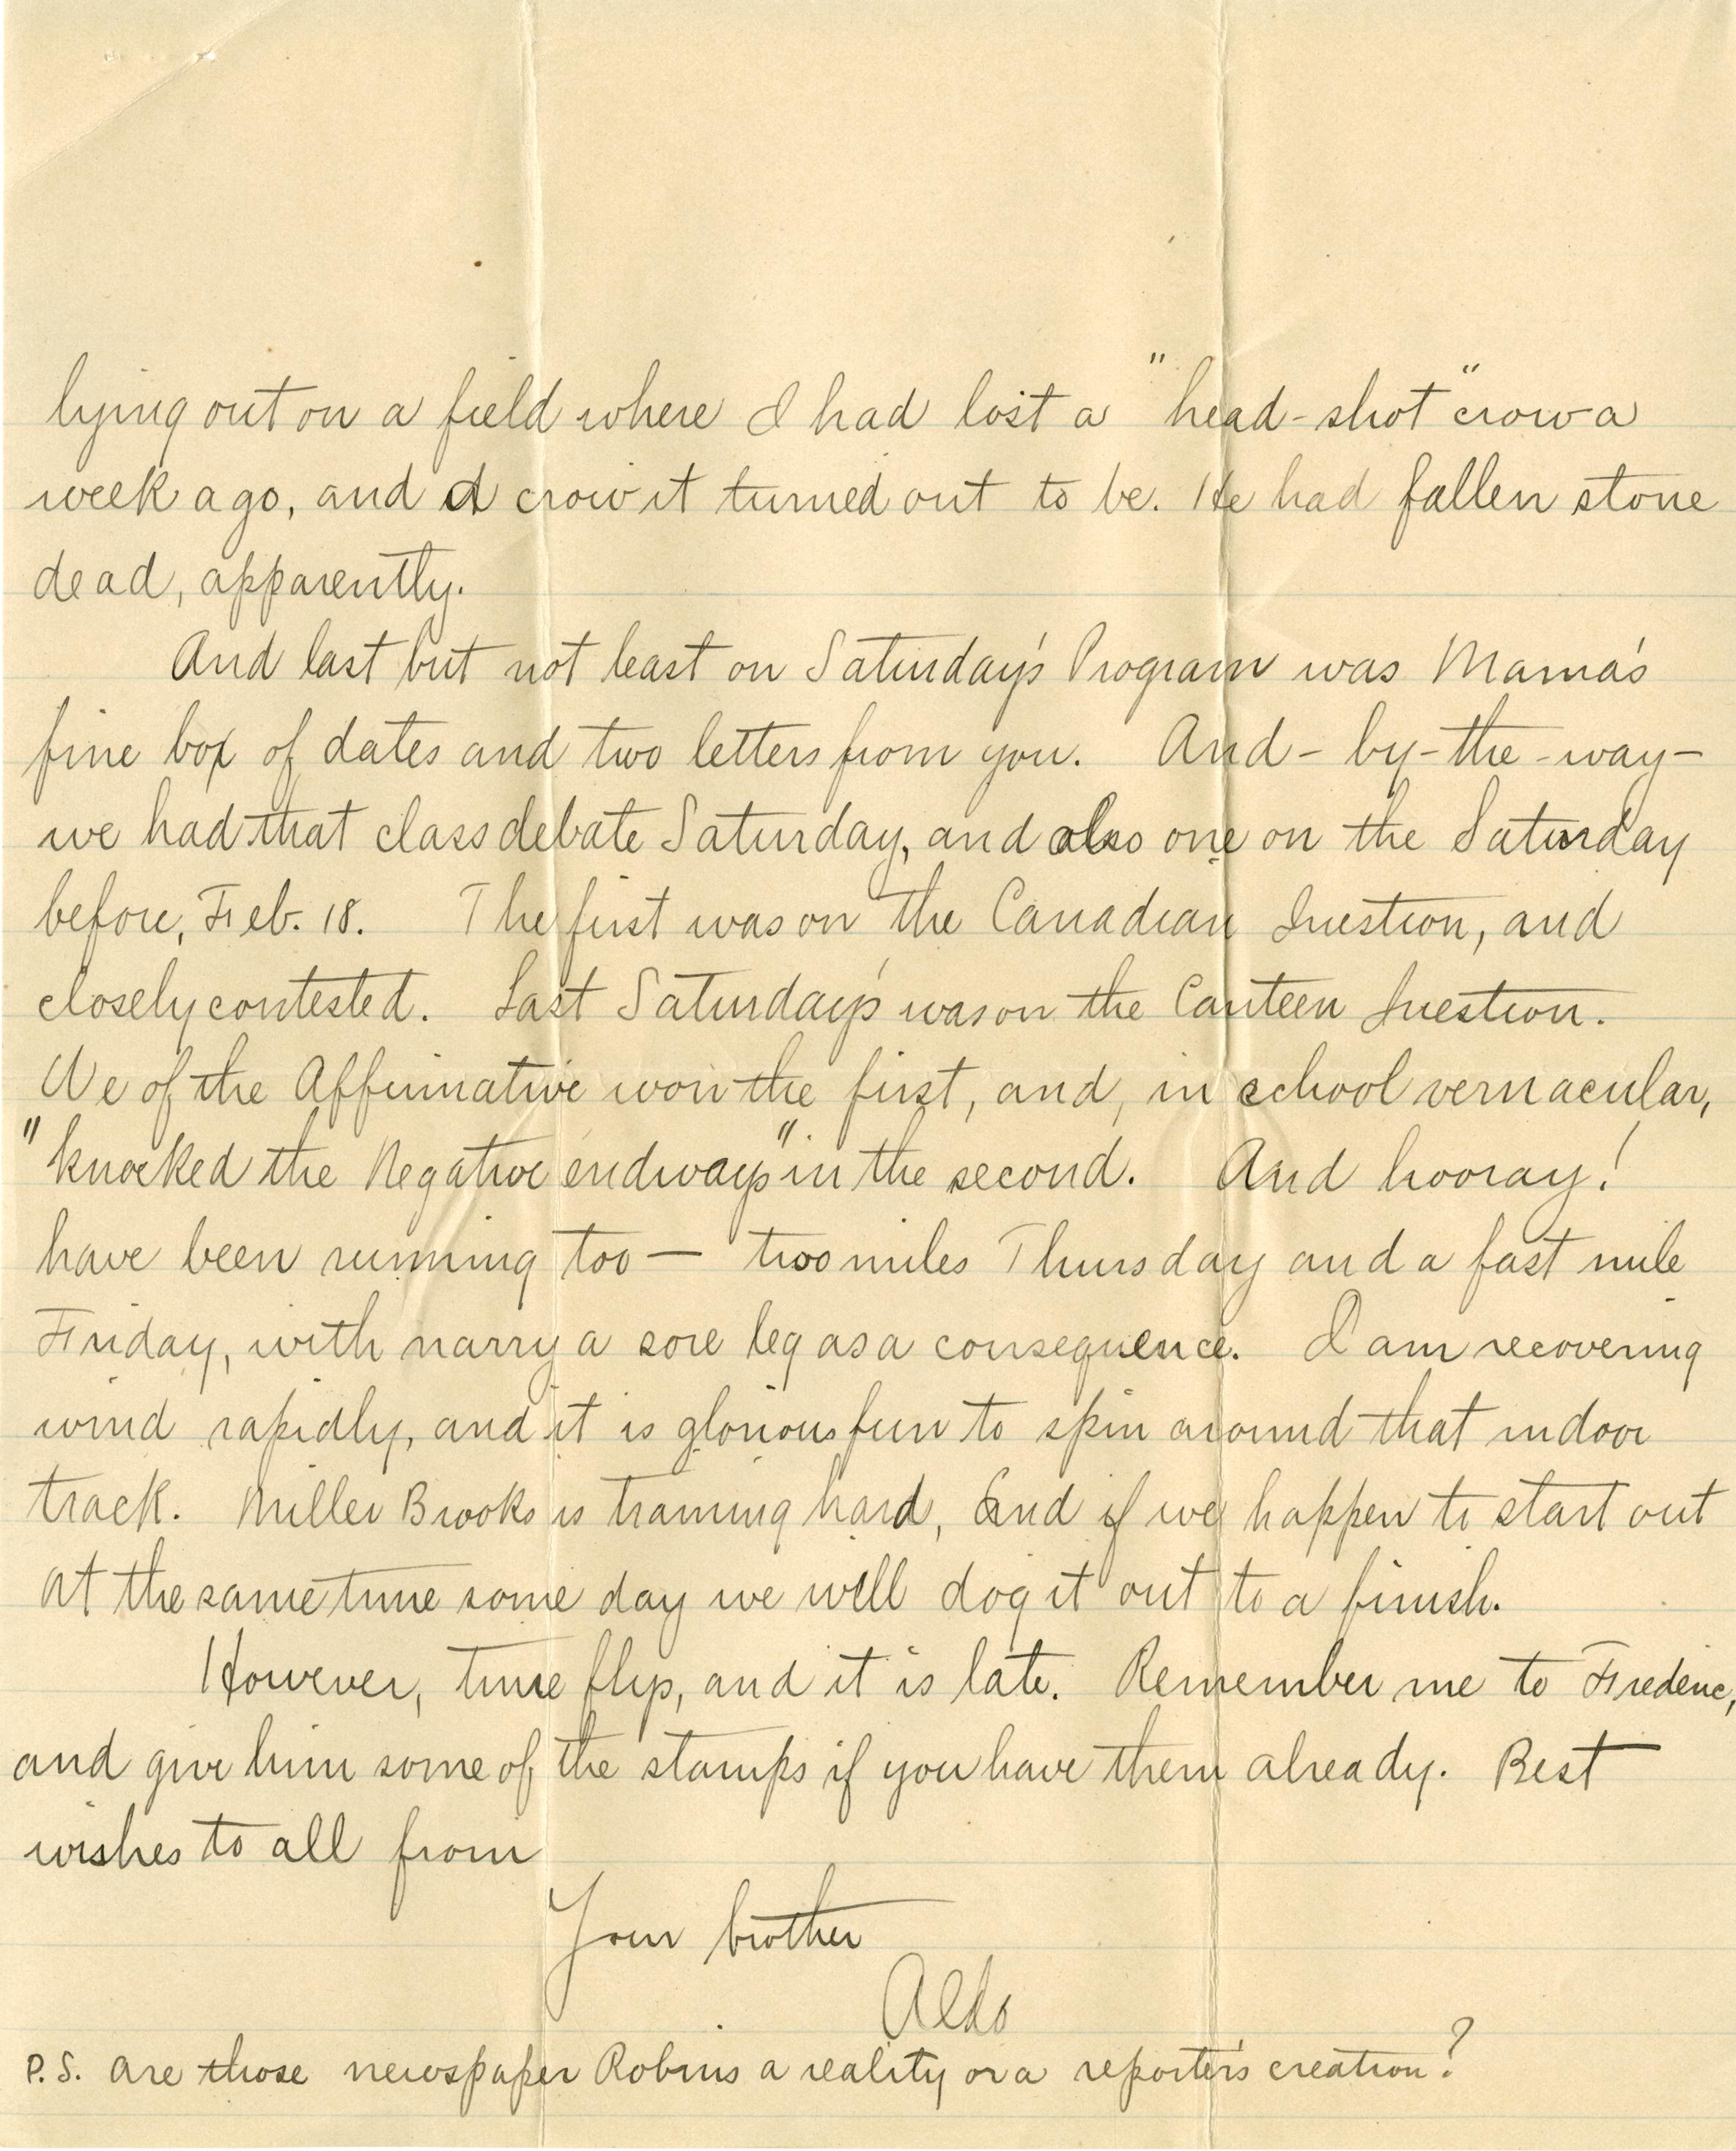 lying out on a field where I had lost a "head-shot" crow a
week ago, and a crow it turned out to be. He had fallen stone
dead, apparently.
And last but not least on Saturday's Program was Mama's
fine box of dates and two letters from you. And - by-the-way -
we had that class debate Saturday, and also one on the Saturday
before, Feb. 18. The first was on the Canadian Question, and
closely contested. Last Saturday's was on the Canteen Question.
We of the Affirmative won the first, and, in school vernacular,
"knocked the Negative endways" in the second. And hooray!
have been running too — two miles Thursday and a fast mile
Friday, with narry a sore leg as a consequence. I am recovering
wind rapidly, and it is glorious fun to spin around that indoor
track. Miller Brooks is training hard, and if we happen to start out
at the same time some day we will dog it out to a finish.
However, time flys, and it is late. Remember me to Frederic,
and give him some of the stamps if you have them already. Best
wishes to all from
Your brother
Aldo
P.S. Are those newspaper Robins a reality or a reporter's creation?